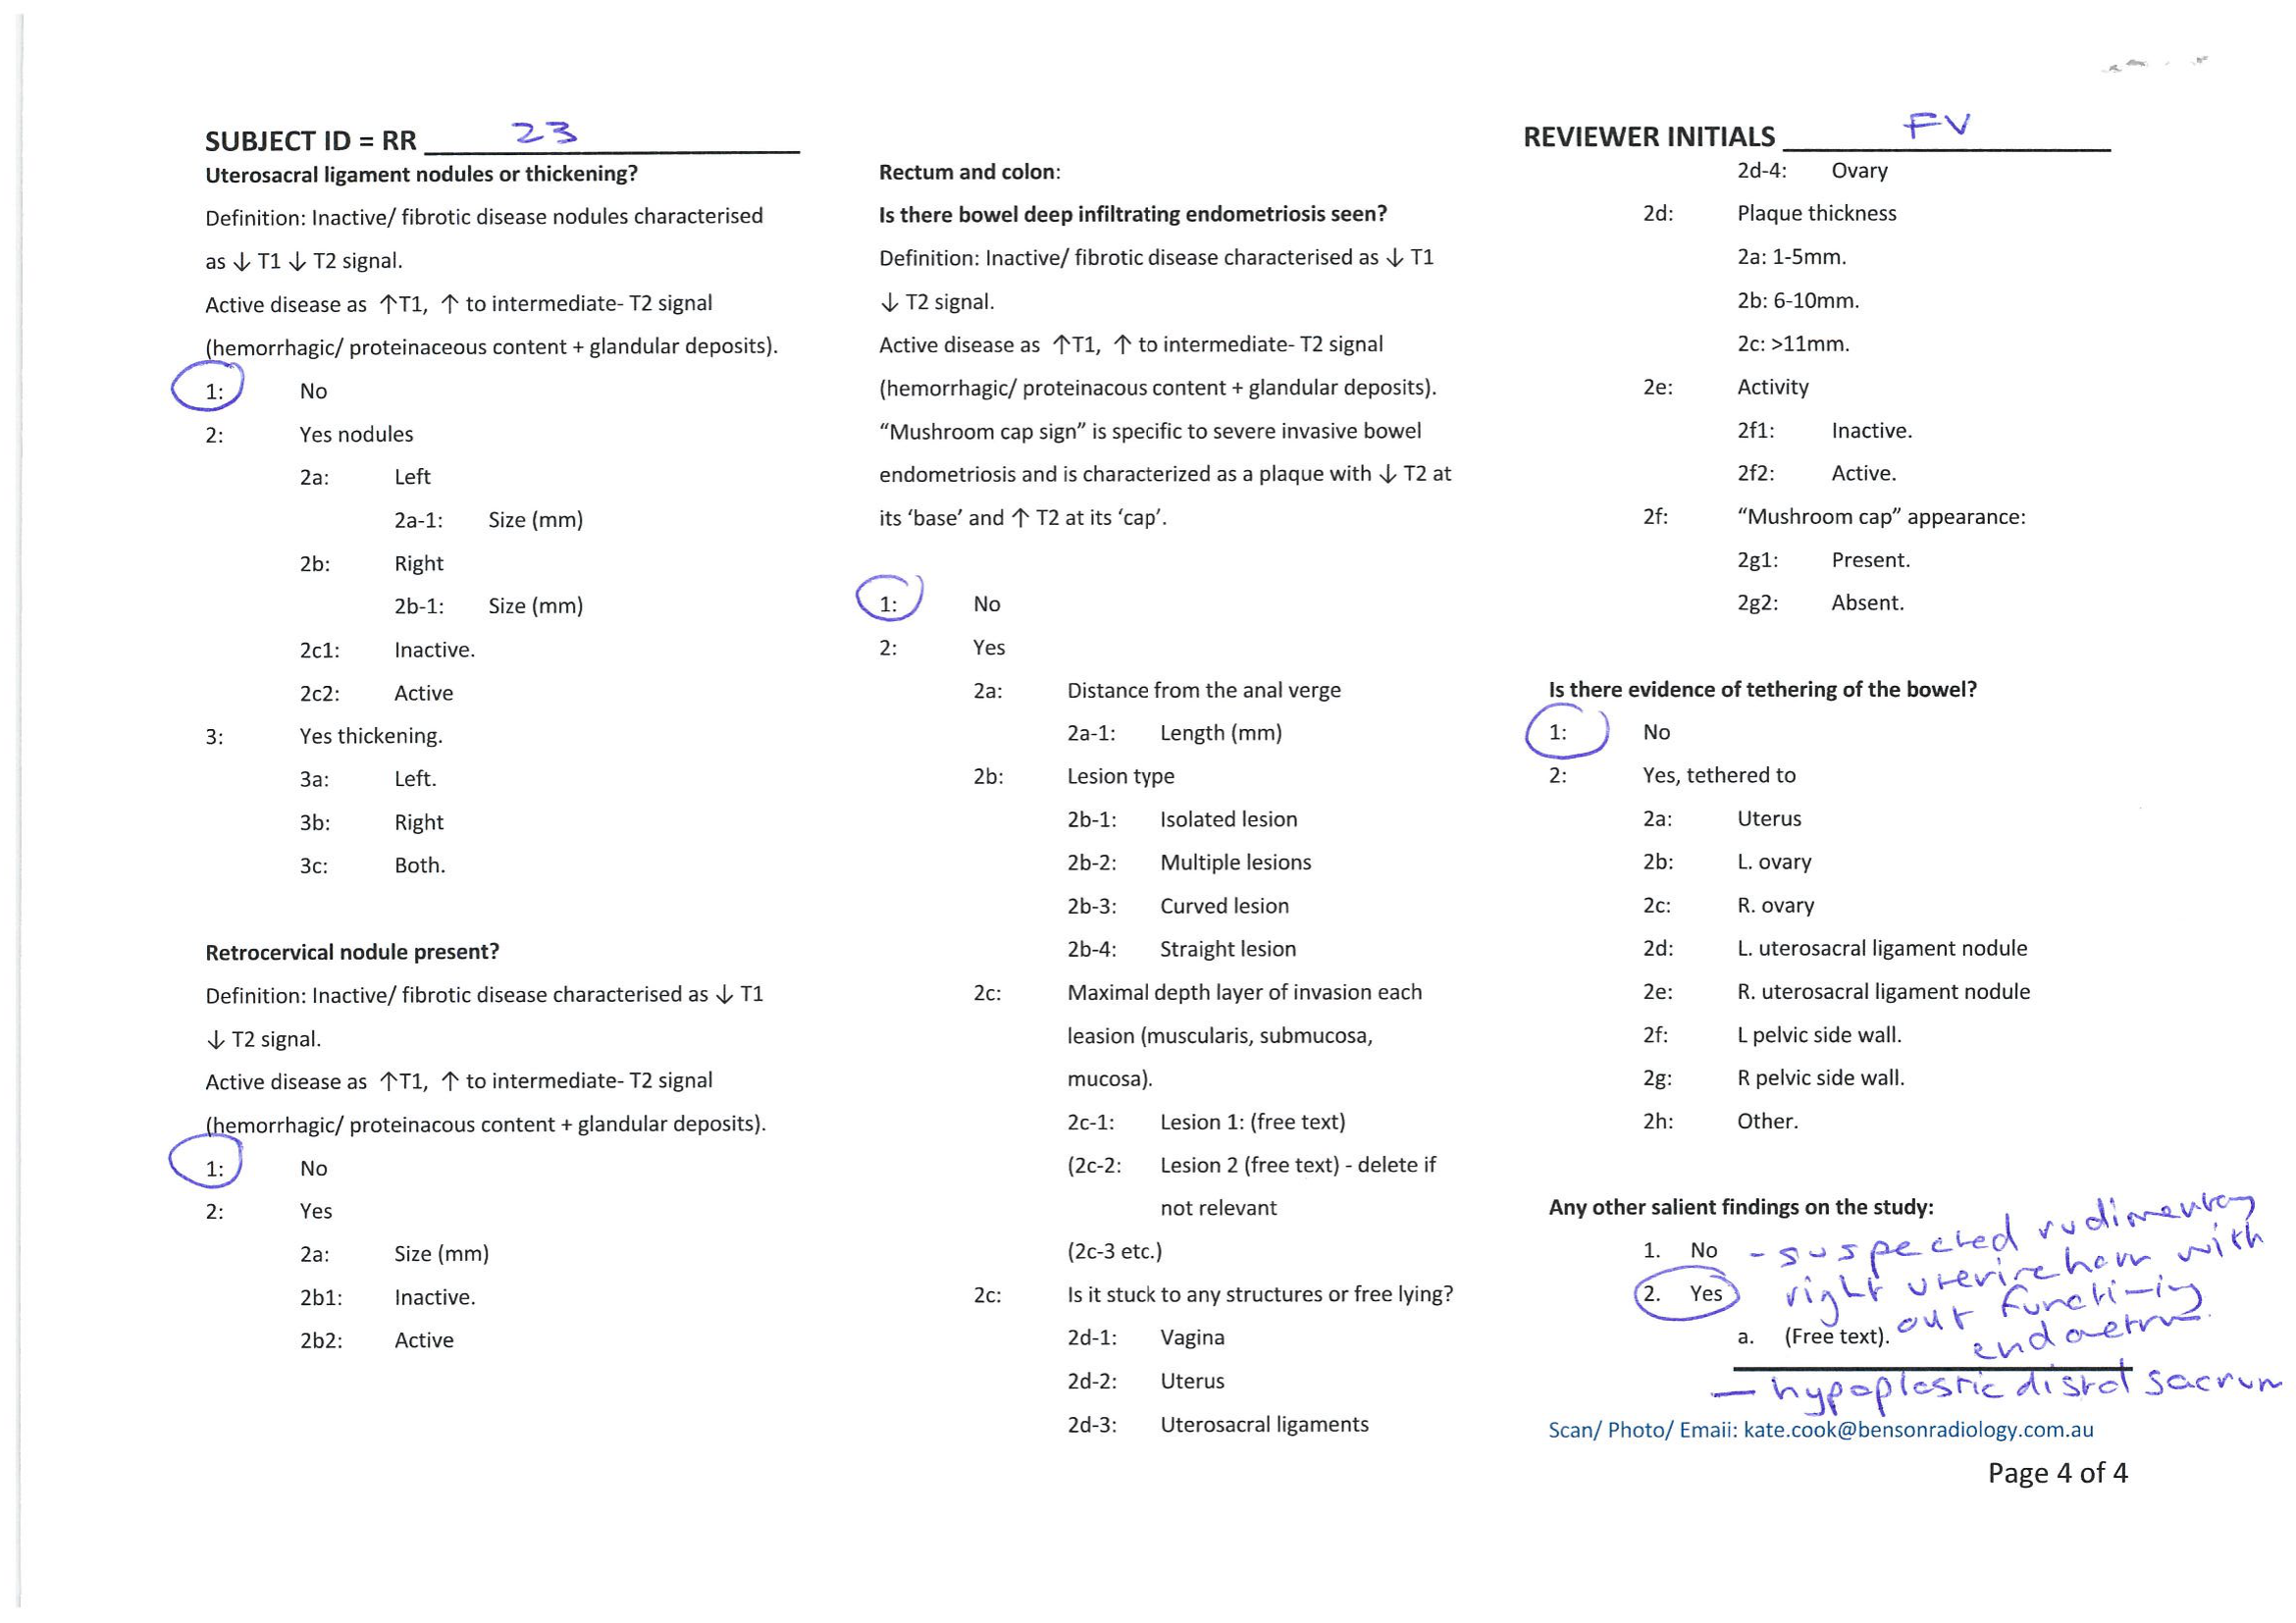 SUBJECT ID = RR 23
REVIEWER INITIALS FV
Uterosacral ligament nodules or thickening?
Definition: Inactive/ fibrotic disease nodules characterised
as ↓ T1 ↓ T2 signal.
Active disease as ↑T1, ↑ to intermediate- T2 signal
(hemorrhagic/ proteinaceous content + glandular deposits).
1: No
2: Yes nodules
2a: Left
2a-1: Size (mm)
2b: Right
2b-1: Size (mm)
2c1: Inactive.
2c2: Active
3: Yes thickening.
3a: Left.
3b: Right
3c: Both.
Retrocervical nodule present?
Definition: Inactive/ fibrotic disease characterised as ↓ T1
↓ T2 signal.
Active disease as ↑T1, ↑ to intermediate- T2 signal
(hemorrhagic/ proteinacous content + glandular deposits).
1: No
2: Yes
2a: Size (mm)
2b1: Inactive.
2b2: Active
Rectum and colon:
Is there bowel deep infiltrating endometriosis seen?
Definition: Inactive/ fibrotic disease characterised as ↓ T1
↓ T2 signal.
Active disease as ↑T1, ↑ to intermediate- T2 signal
(hemorrhagic/ proteinacous content + glandular deposits).
“Mushroom cap sign” is specific to severe invasive bowel
endometriosis and is characterized as a plaque with ↓ T2 at
its ‘base’ and ↑ T2 at its ‘cap’.
1: No
2: Yes
2a: Distance from the anal verge
2a-1: Length (mm)
2b: Lesion type
2b-1: Isolated lesion
2b-2: Multiple lesions
2b-3: Curved lesion
2b-4: Straight lesion
2c: Maximal depth layer of invasion each
leasion (muscularis, submucosa,
mucosa).
2c-1: Lesion 1: (free text)
(2c-2: Lesion 2 (free text) - delete if
not relevant
(2c-3 etc.)
2c: Is it stuck to any structures or free lying?
2d-1: Vagina
2d-2: Uterus
2d-3: Uterosacral ligaments
2d-4: Ovary
2d: Plaque thickness
2a: 1-5mm.
2b: 6-10mm.
2c: >11mm.
2e: Activity
2f1: Inactive.
2f2: Active.
2f: “Mushroom cap” appearance:
2g1: Present.
2g2: Absent.
Is there evidence of tethering of the bowel?
1: No
2: Yes, tethered to
2a: Uterus
2b: L. ovary
2c: R. ovary
2d: L. uterosacral ligament nodule
2e: R. uterosacral ligament nodule
2f: L pelvic side wall.
2g: R pelvic side wall.
2h: Other.
Any other salient findings on the study:
1. No
2. Yes
a. (Free text).
- suspected rudimentary
right uterine horn with
out
— hypoplastic distal sacrum
Scan/ Photo/ Email: kate.cook@bensonradiology.com.au
Page 4 of 4